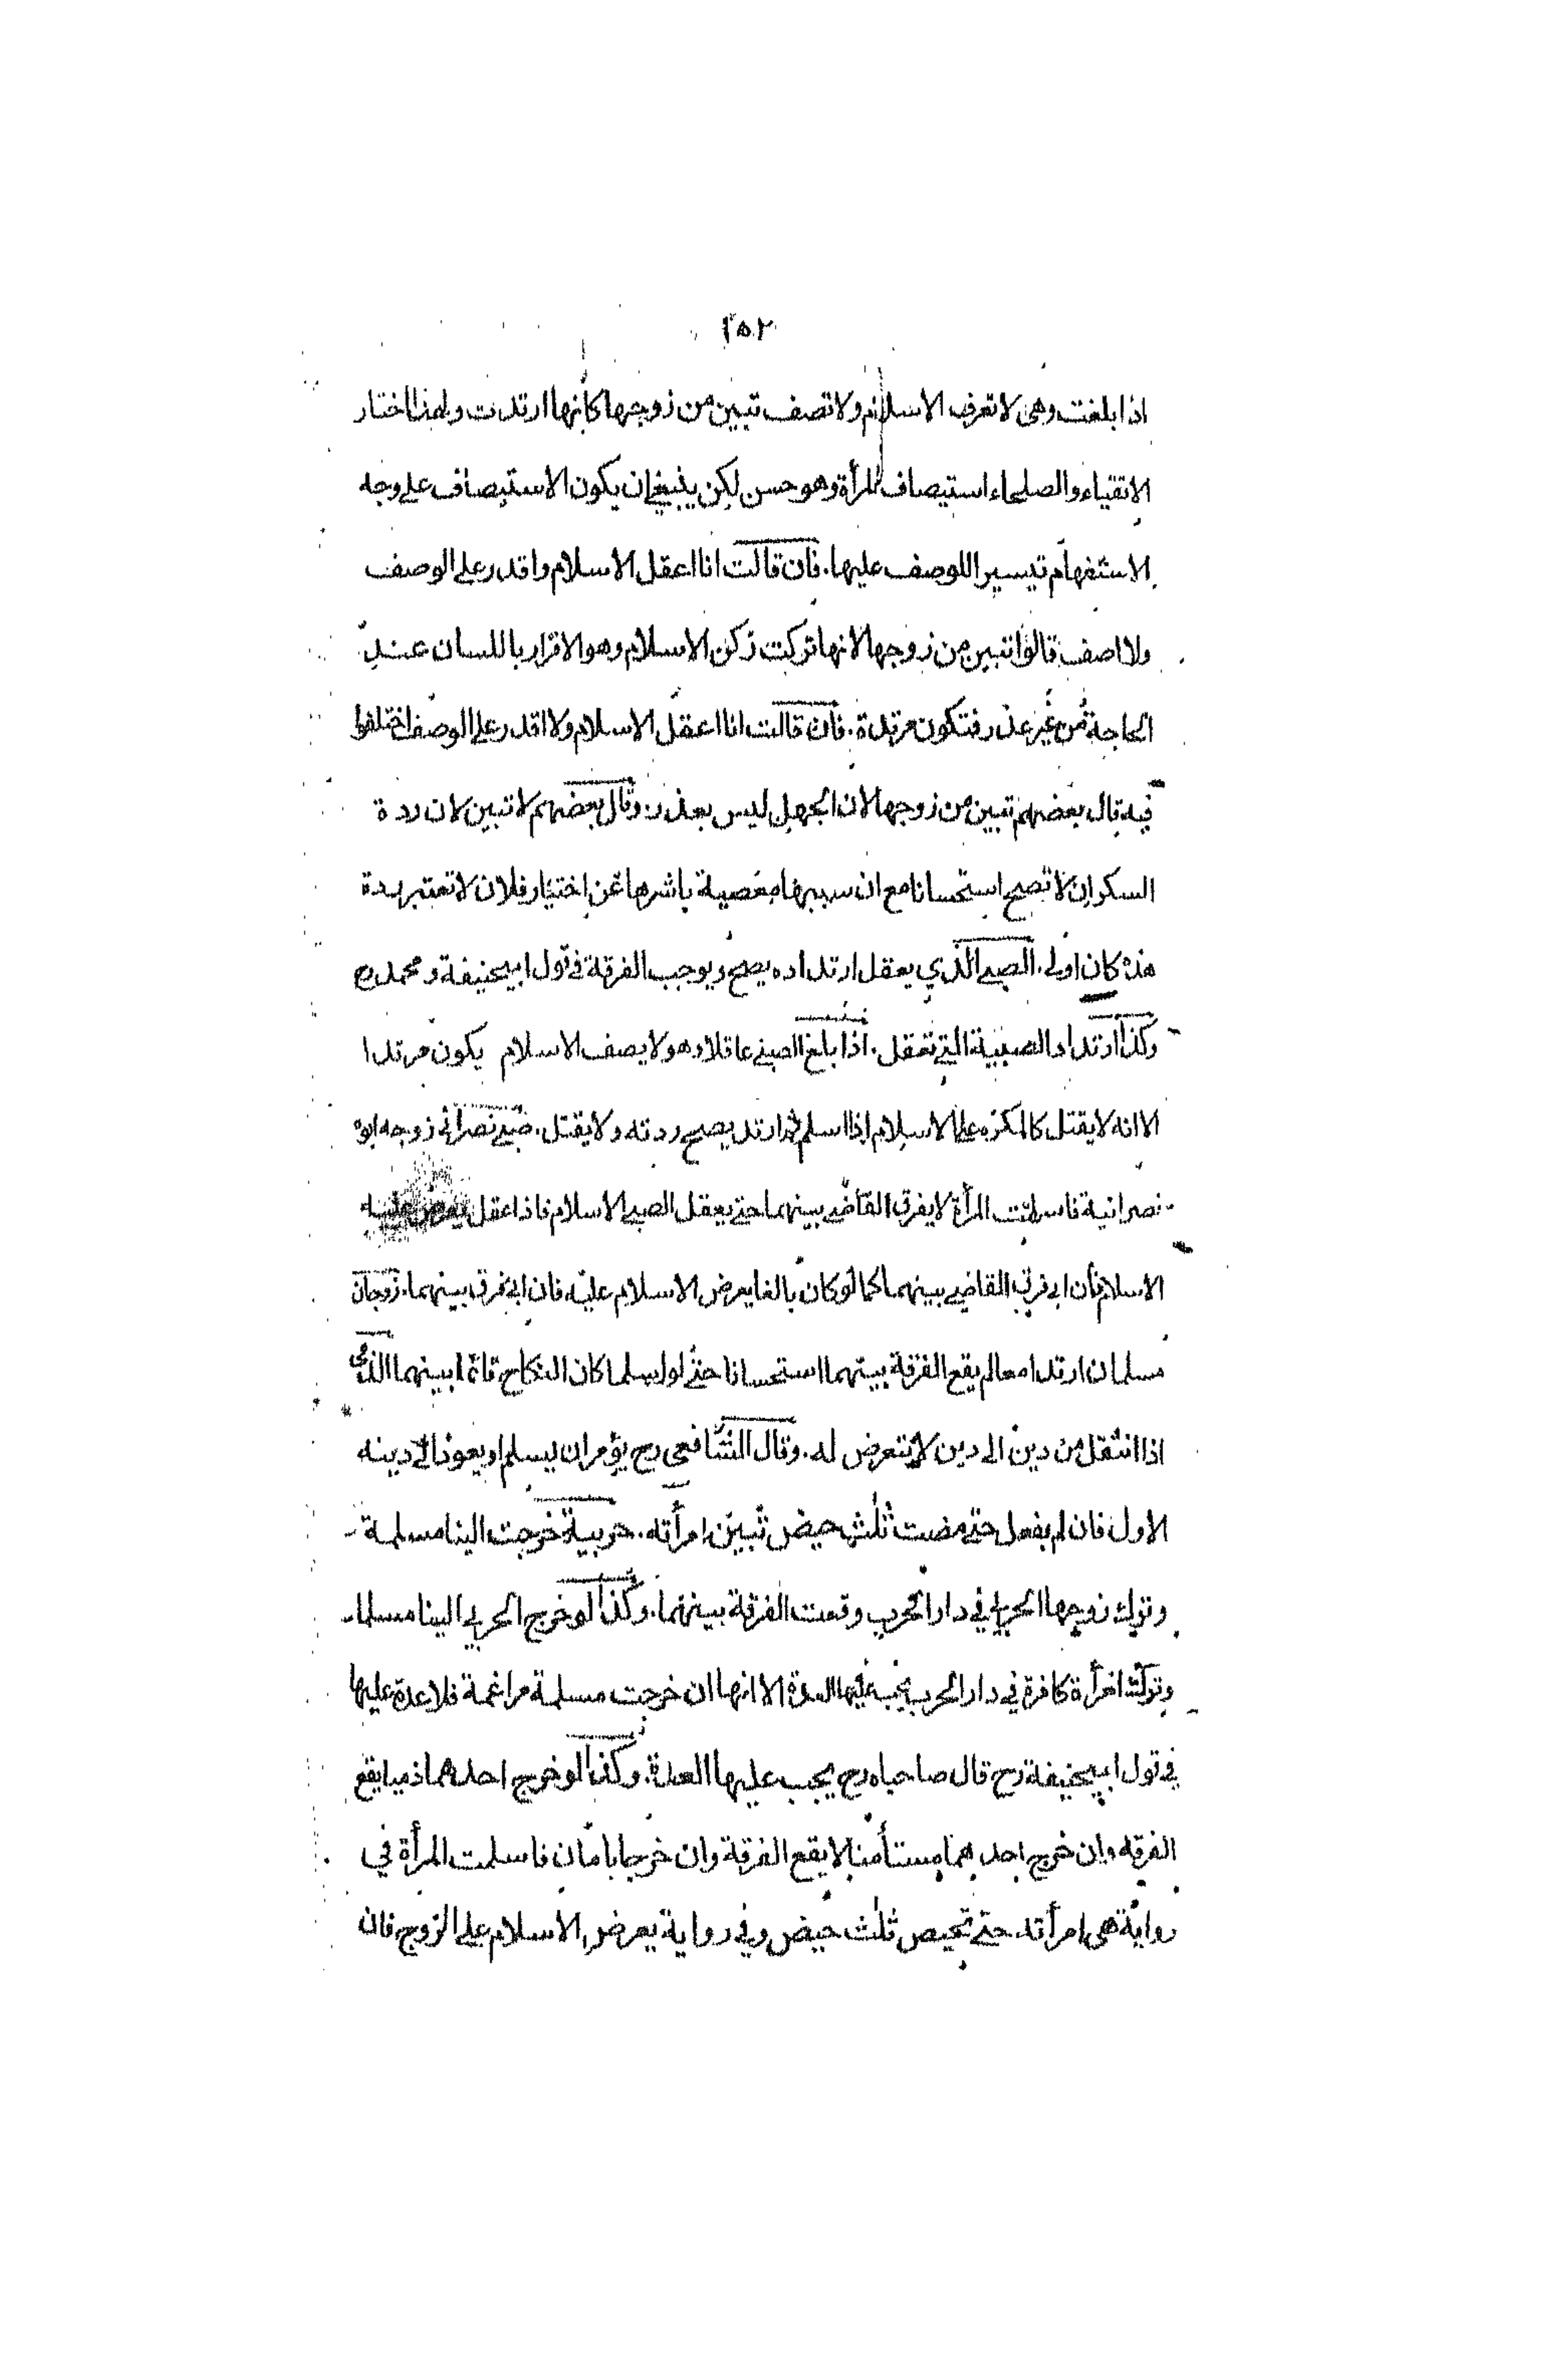 ٢٥٢
اذا بلغت وهي لا تعرف الاسلام ولا تصف تبين من زوجها كأنها ارتدت ولهذا اختار
الاتقياء والصلحاء استيصاف المرأة وهو حسن لكن ينبغي ان يكون الاستيصاف على وجه
الاستفهام تيسيرا للوصف عليها. فان قالت انا اعقل الاسلام واقدر على الوصف
ولا اصف قالوا تبين من زوجها لانها تركت ركن الاسلام وهو الاقرار باللسان عند
الحاجة من غير عذر فتكون مرتدة. فان قالت انا اعقل الاسلام ولا اقدر على الوصف اختلفوا
فيه قال بعضهم تبين من زوجها لان الجهل ليس بعذر. وقال بعضهم لا تبين لان ردة
السكران لا تصح استحسانا مع ان سببها معصية باشرها عن اختيار فلان لا تعتبر ردة
هذه كان اولى. الصبي الذي يعقل ارتداده يصح ويوجب الفرقة في قول ابيحنيفة ومحمد رح
وكذا ارتداد الصبية التي تعقل. اذا بلغ الصبي عاقلا وهو لا يصف الاسلام يكون مرتدا
الا انه لا يقتل كالمكره على الاسلام اذا اسلم ثم ارتد يصح ردته ولا يقتل. صبي نصراني زوجه ابوه
نصرانية فاسلمت المرأة لا يفرق القاضي بينهما حتى يعقل الصبي الاسلام فاذا عقل يعرض عليه
الاسلام فان ابى فرق القاضي بينهما كما لو كان بالغا يعرض الاسلام عليه فان ابى فرق بينهما. زوجان
مسلمان ارتدا معا لم يقع الفرقة بينهما استحسانا حتى لو اسلما كان النكاح قائما بينهما الذمي
اذا انتقل من دين الى دين لا يتعرض له. وقال الشافعي رح يؤمر ان يسلم او يعود الى دينه
الاول فان لم يفعل حتى مضت ثلث حيض تبين امرأته. حربية خرجت الينا مسلمة
وترك زوجها الحربي في دار الحرب وقعت الفرقة بينهما. وكذا لو خرج الحربي الينا مسلما
وتركت امرأة كافرة في دار الحرب يجب عليها العدة الا انها ان خرجت مسلمة مراغمة فلا عدة عليها
في قول ابيحنيفة رح قال صاحباه رح يجب عليها العدة. وكذا لو خرج احدهما ذميا يقع
الفرقة وان خرج احدهما مستأمنا لا يقع الفرقة وان خرجا بامان فاسلمت المرأة في
رواية هي امرأته حتى تحيض ثلث حيض وفي رواية يعرض الاسلام على الزوج فان